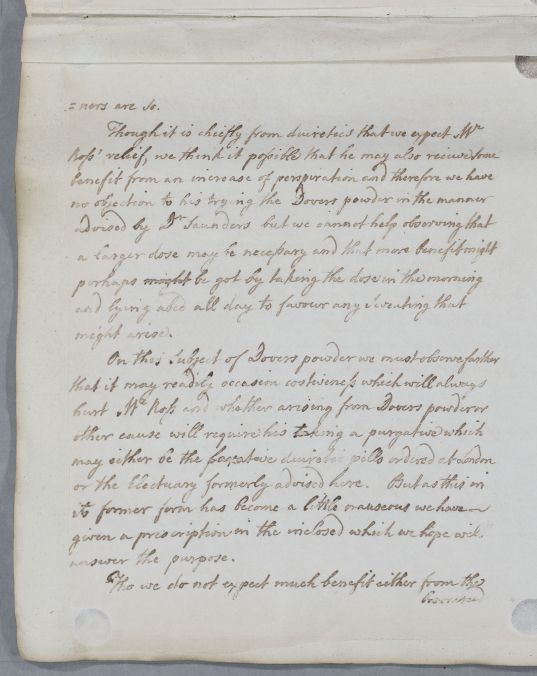 =ners are so.
Though it is chiefly from diuretics that we expect Mr
Ross' relief, we think it possible that he may also recieve some
benefit from an increase of perspiration and therefore we have
no objection to his trying the Dovers powder in the manner
advised by Dr Saunders but we cannot help observing that
a larger dose may be necessary and that more benefit might
perhaps might be got by taking the dose in the morning
and lying abed all day to favour any sweating that
might arise.
On this Subject of Dovers powder we must observe further
that it may readily occasion costiveness which will always
hurt Mr Ross and whether arising from Dovers powder or
other cause will require his taking a purgative which
may either be the diuretic pills ordered at London
or the Electuary formerly advised here. But as this in
its former form has become a little nauseous we have
given a prescription in the inclosed which we hope will
answer the purpose.
Tho we do not expect much benefit either from the